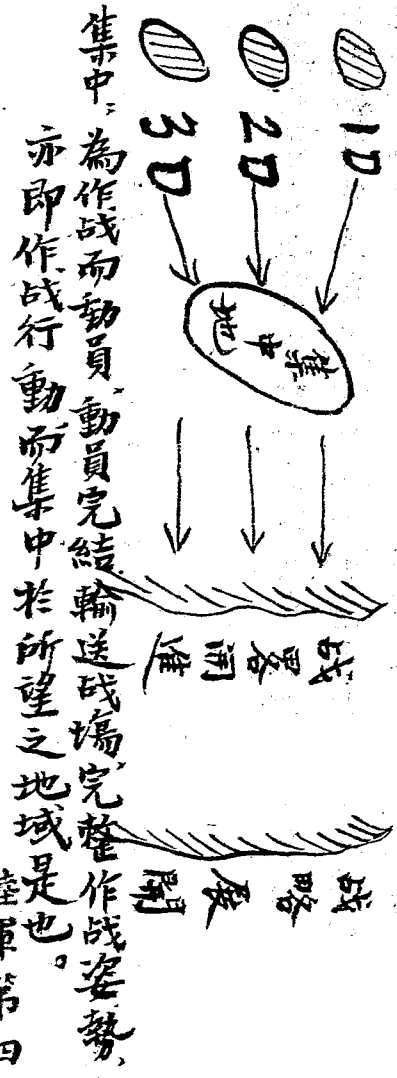 1D
2D
3D
集中地
战畧開進
战略展開
集中：為作战而動員、動員完結、輸送战場、完整作战姿勢、
亦即作战行動而集中於所望之地域是也。
陸軍第四